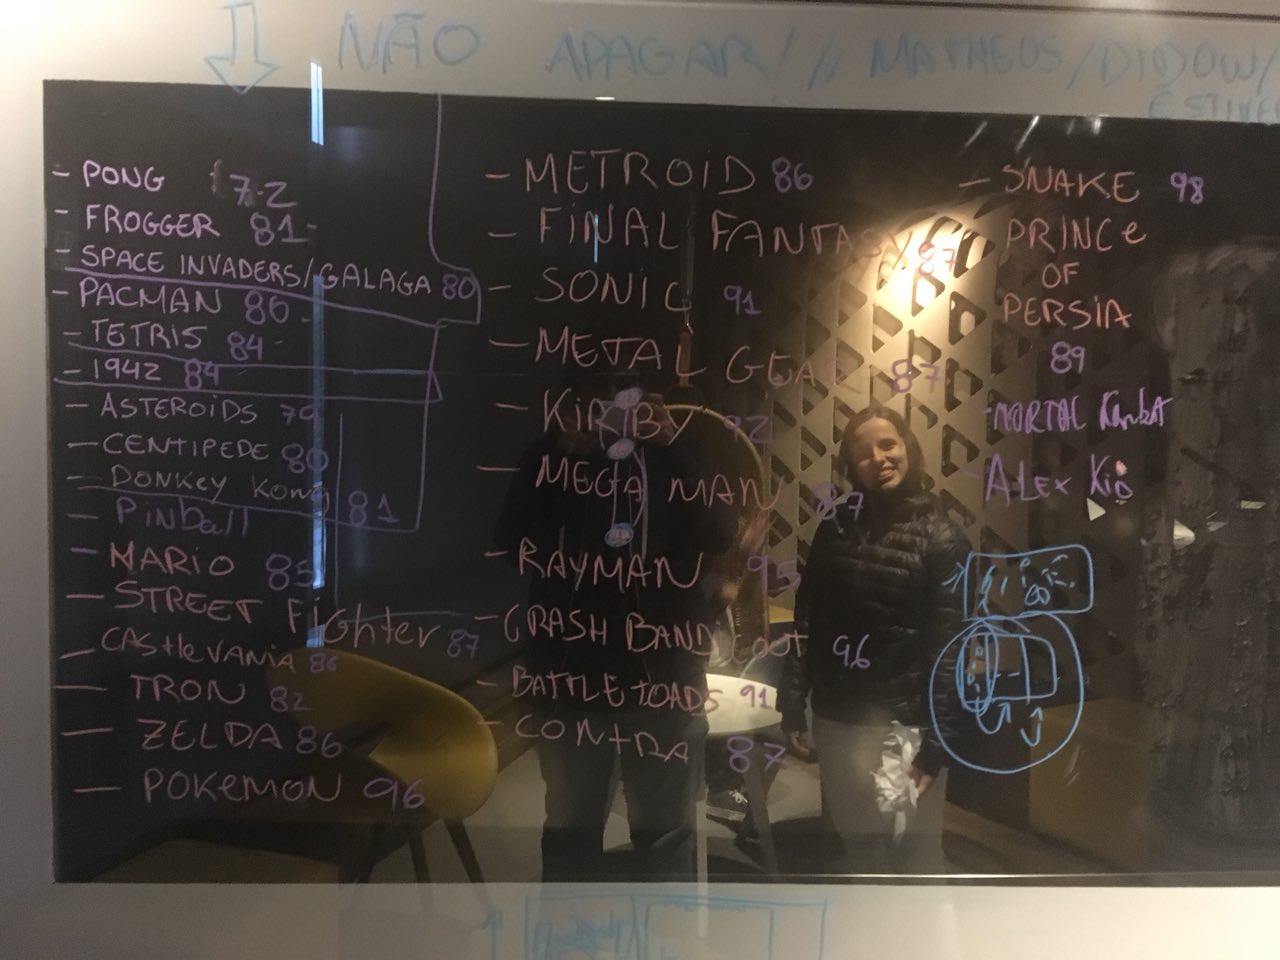 NÃO APAGAR/ // MATHEOS/DIDOW/
- PONG 72
- FROGGER 81
- SPACE INVADERS/GALAGA 80
- PACMAN 80
- TETRIS 84
- 1942 84
- ASTEROIDS 79
- CENTIPEDE 80
- DONKEY KONG 81
- PINBALL
- MARIO 85
- STREET FIGHTER 87
- CASTLEVANIA 86
- TRON 82
- ZELDA 86
- POKEMON 96
- METROID 86
- FINAL FANTASY 87
- SONIC 91
- METAL GEAR 87
- KIRBY 92
- MEGA MAN 87
- RAYMAN 95
- CRASH BANDICOOT 96
- BATTLETOADS 91
- CONTRA 87
- SNAKE 98
PRINCE
OF
PERSIA
89
- MORTAL KOMBAT
- ALEX KID